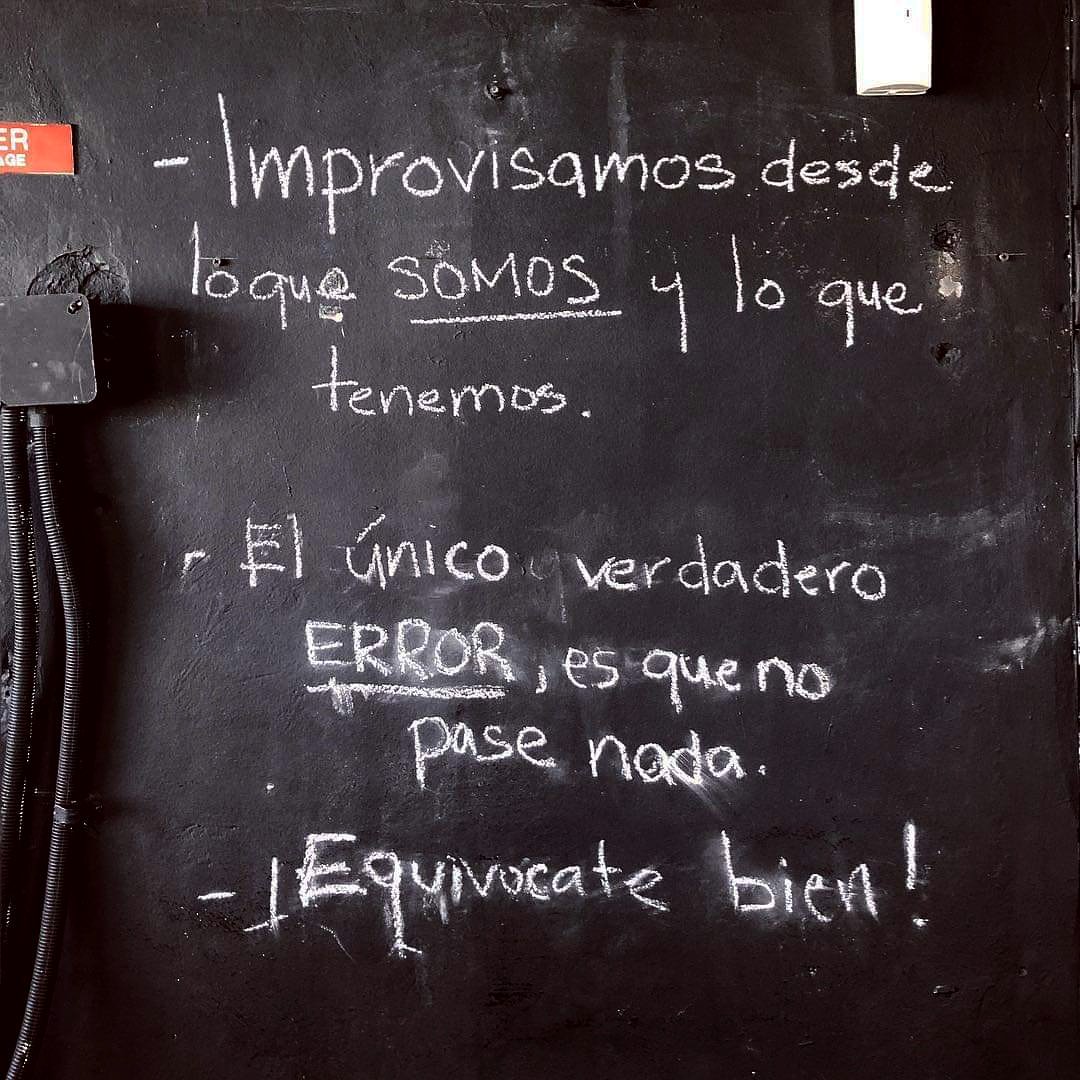 ER
AGE
- Improvisamos desde
lo que SOMOS y lo que
tenemos.
- El único verdadero
ERROR, es que no
pase nada.
- ¡Equivocate bien!